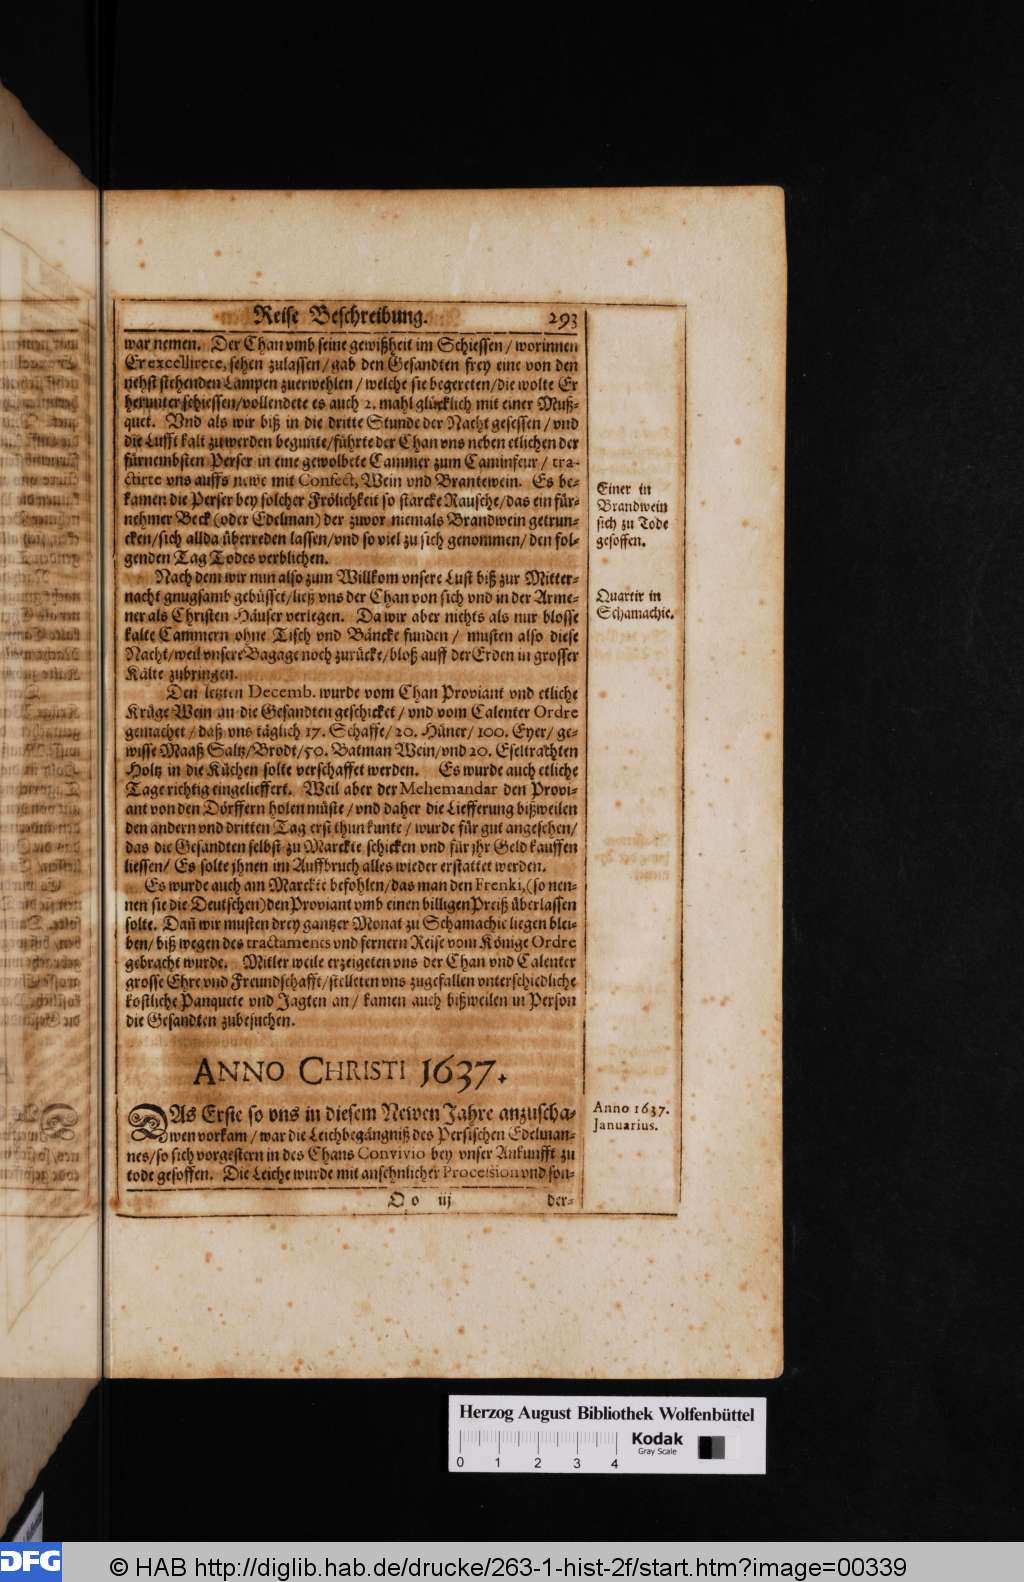 Reise Beschreibung. 293
war nemen. Der Chan vmb seine gewißheit im Schiessen / worinnen
Er excellirete, sehen zulassen / gab den Gesandten frey eine von den
nehst stehenden Lampen zuerwehlen / welche sie begereten / die wolte Er
herunter schiessen / vollendete es auch 2. mahl glücklich mit einer Muß-
quet. Vnd als wir biß in die dritte Stunde der Nacht gesessen / vnd
die Lufft kalt zuwerden begunte / führte der Chan vns neben etlichen der
fürnembsten Perser in eine gewolbete Cammer zum Caminfeur / tra-
ctirte vns auffs newe mit Confect, Wein vnd Brantewein. Es be-
kamen die Perser bey solcher Frölichkeit so starcke Rausche / das ein für-
nehmer Beck (oder Edelman) der zuvor niemals Brandwein getrun-
cken / sich allda überreden lassen / vnd so viel zu sich genommen / den fol-
genden Tag Todes verblichen.
Einer in
Brandwein
sich zu Tode
gesoffen.
Nach dem wir nun also zum Willkom vnsere Lust biß zur Mitter-
nacht gnugsamb gebüsset / ließ vns der Chan von sich vnd in der Arme-
ner als Christen Häuser verlegen. Da wir aber nichts als nur blosse
kalte Cammern ohne Tisch vnd Bäncke funden / musten also diese
Nacht / weil vnsere Bagage noch zurücke / bloß auff der Erden in grosser
Kälte zubringen.
Quartir in
Schamachie.
Den letzten Decemb. wurde vom Chan Proviant vnd etliche
Krüge Wein an die Gesandten geschicket / vnd vom Calenter Ordre
gemachet / daß vns täglich 17. Schaffe / 20. Hüner / 100. Eyer / ge-
wisse Maaß Saltz / Brodt / 50. Batman Wein / vnd 20. Eseltrachten
Holtz in die Küchen solte verschaffet werden. Es wurde auch etliche
Tage richtig eingelieffert. Weil aber der Mehemandar den Provi-
ant von den Dörffern holen müste / vnd daher die Liefferung bißweilen
den andern vnd dritten Tag erst thun kunte / wurde für gut angesehen /
das die Gesandten selbst zu Marckte schicken vnd für jhr Geld kauffen
liessen / Es solte jhnen im Auffbruch alles wieder erstattet werden.
Es wurde auch am Marckte befohlen / das man den Frenki, (so nen-
nen sie die Deutschen) den Proviant vmb einen billigen Preiß überlassen
solte. Dañ wir musten drey gantzer Monat zu Schamachie liegen blei-
ben / biß wegen des tractaments vnd fernern Reise vom Könige Ordre
gebracht wurde. Mitler weile erzeigeten vns der Chan vnd Calenter
grosse Ehre vnd Freundschafft / stelleten vns zugefallen vnterschiedliche
kostliche Panquete vnd Jagten an / kamen auch bißweilen in Person
die Gesandten zubesuchen.
ANNO CHRISTI 1637.
DAs Erste so vns in diesem Newen Jahre anzuscha-
wen vorkam / war die Leichbegängniß des Persischen Edelman-
nes / so sich vorgestern in des Chans Convivio bey vnser Ankunfft zu
tode gesoffen. Die Leiche wurde mit ansehnlicher Procession vnd son-
Anno 1637.
Januarius.
O o iij der-
Herzog August Bibliothek Wolfenbüttel
0 1 2 3 4
Kodak
Gray Scale
DFG
© HAB http://diglib.hab.de/drucke/263-1-hist-2f/start.htm?image=00339